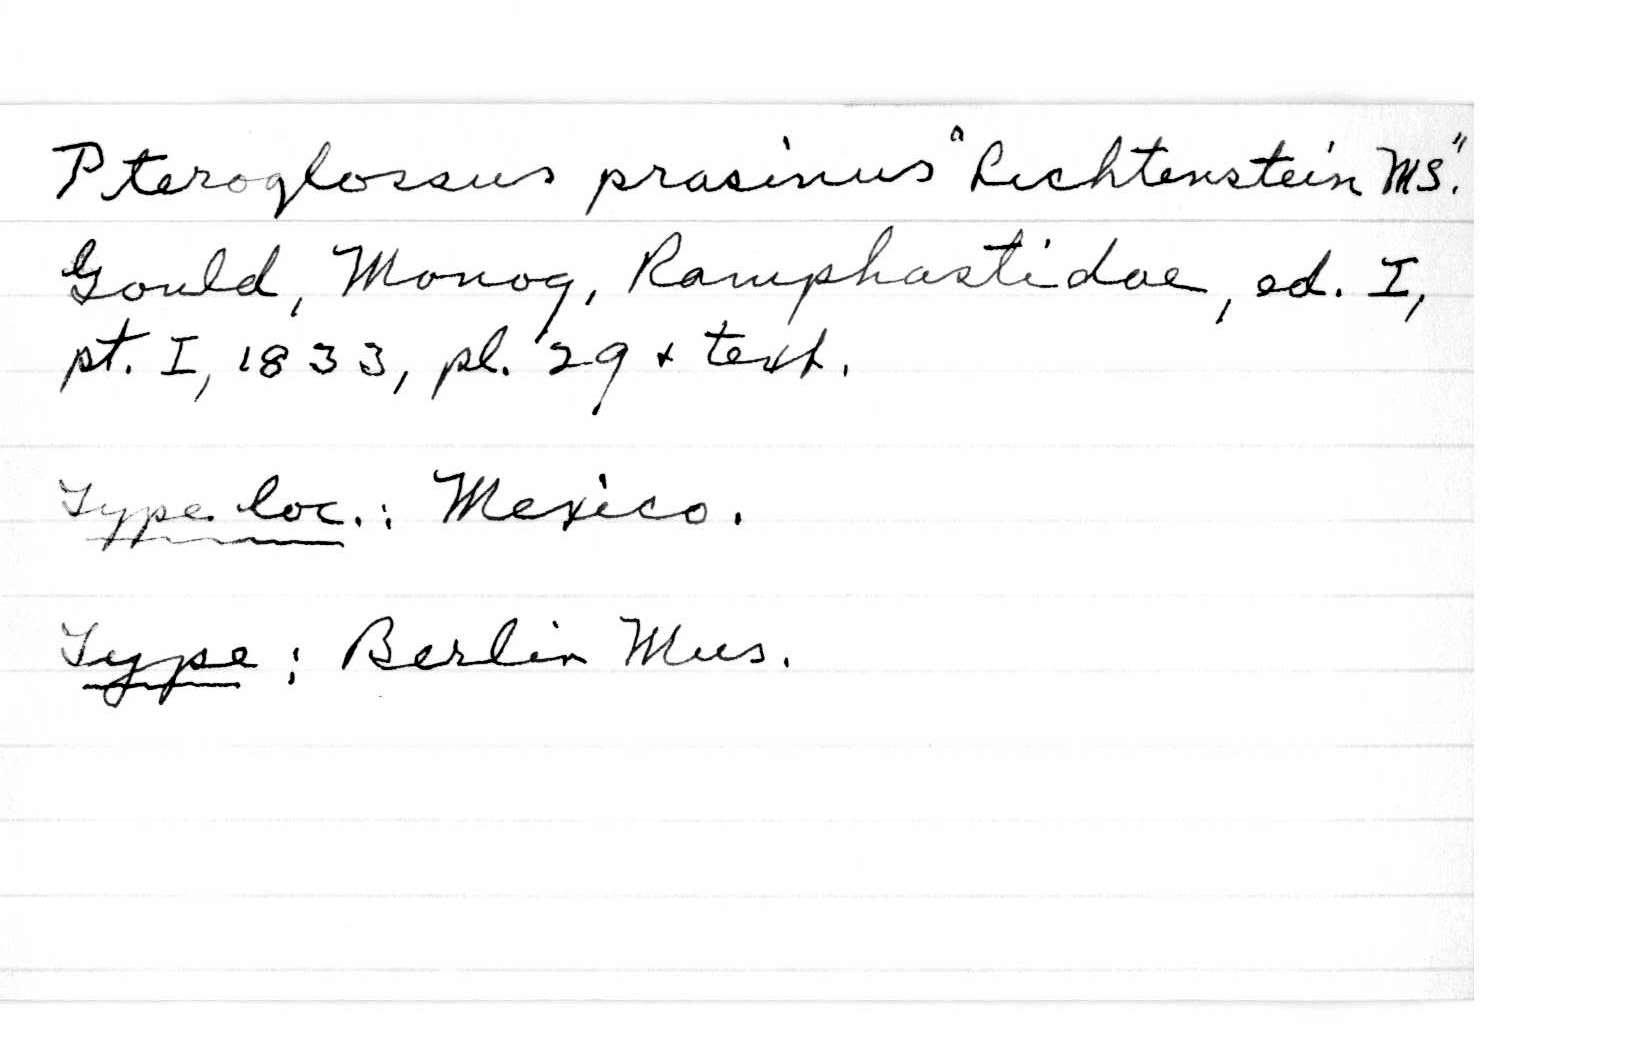 Pteroglossus prasinus "Lichtenstein MS."
Gould, Monog, Ramphastidae, ed. I,
pt. I, 1833, pl. 29 + text.
Type loc.: Mexico.
Type: Berlin Mus.